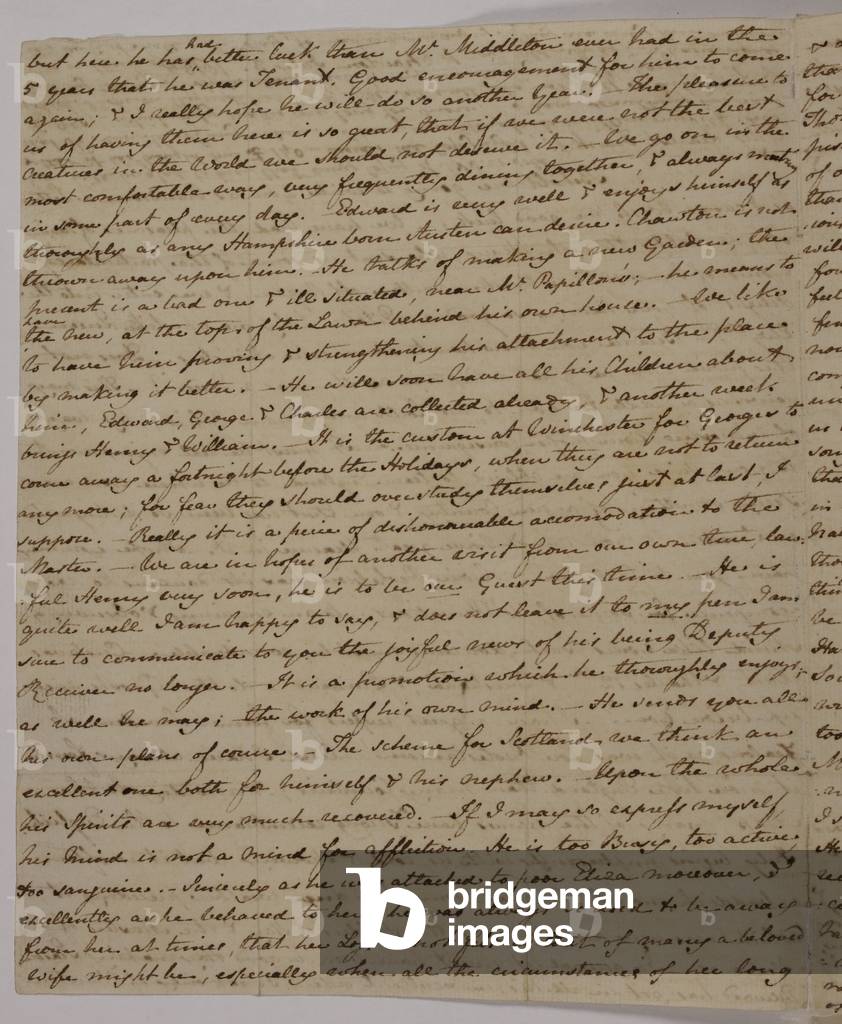 but here he has had better luck than Mr. Middleton ever had in the
5 years that he was Tenant. Good encouragement for him to come
again; & I really hope he will do so another Year. — The pleasure to
us of having them here is so great, that if we were not the best
creatures in the World we should not deserve it. — We go on in the
most comfortable way, very frequently dining together, & always meeting
in some part of every day. — Edward is very well & enjoys himself as
thoroughly as any Hampshire born Austen can desire. Chawton is not
thrown away upon him. — He talks of making a new Garden; the
present is a bad one & ill situated, near Mr. Papillon's; — he means to
have
the new, at the top of the Lawn behind his own house. — We like
to have him proving & strengthening his attachment to the place
by making it better. — He will soon have all his Children about
him, Edward, George & Charles are collected already, & another week
brings Henry & William. — It is the custom at Winchester for Georges to
come away a fortnight before the Holidays, when they are not to return
any more; for fear they should overstudy themselves just at last, I
suppose. — Really it is a peice of dishonourable accomodation to the
Master. — We are in hopes of another visit from our own true, law-
ful Henry very soon, he is to be our Guest this time. — He is
quite well I am happy to say, & does not leave it to my pen I am
sure to communicate to you the joyful news of his being Deputy
Receiver no longer. — It is a promotion which he thoroughly enjoys;
as well he may; — the work of his own mind. — He sends you all
his own plans of course. — The scheme for Scotland we think an
excellent one both for himself & his nephew. — Upon the whole
his Spirits are very much recovered. — If I may so express myself,
his Mind is not a Mind for affliction. He is too Busy, too active,
too sanguine. — Sincerely as he was attached to poor Eliza moreover, &
excellently as he behaved to her, he was always used to be away
from her at times, that her not of many a beloved
wife might be, especially when all the circumstances of her long
bridgeman
images